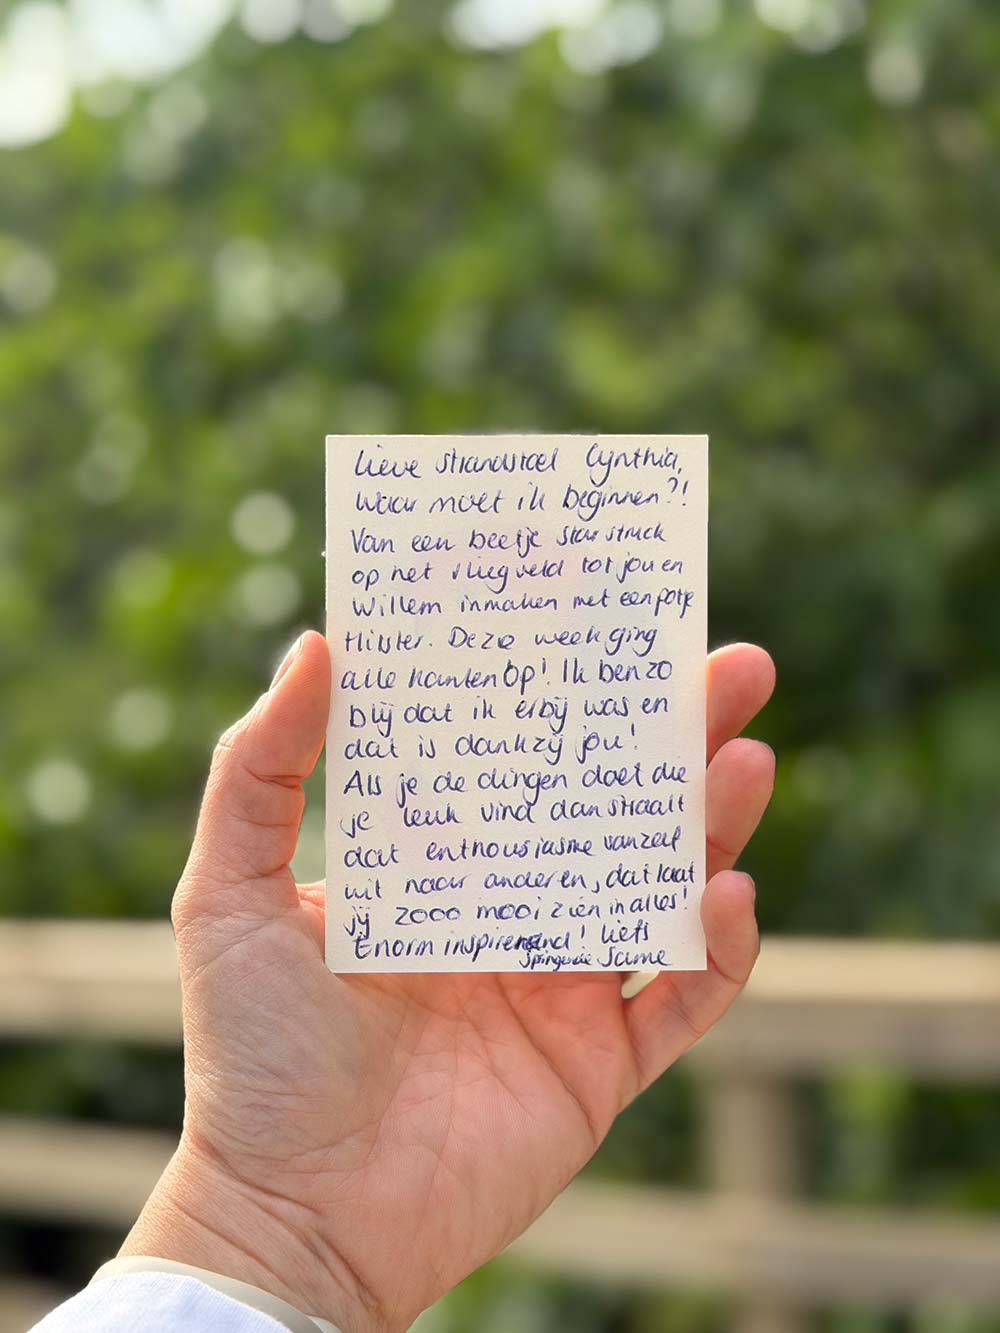 Lieve strandstoel Cynthia,
Waar moet ik beginnen?!
Van een beetje starstruck
op het vliegveld tot jou en
Willem inmaken met een potje
Hitster. Deze week ging
alle kanten op! Ik ben zo
blij dat ik erbij was en
dat is dankzij jou!
Als je de dingen doet die
je leuk vind dan straalt
dat enthousiasme vanzelf
uit naar anderen, dat laat
jij zooo mooi zien in alles!
Enorm inspirerend! Liefs
Springende